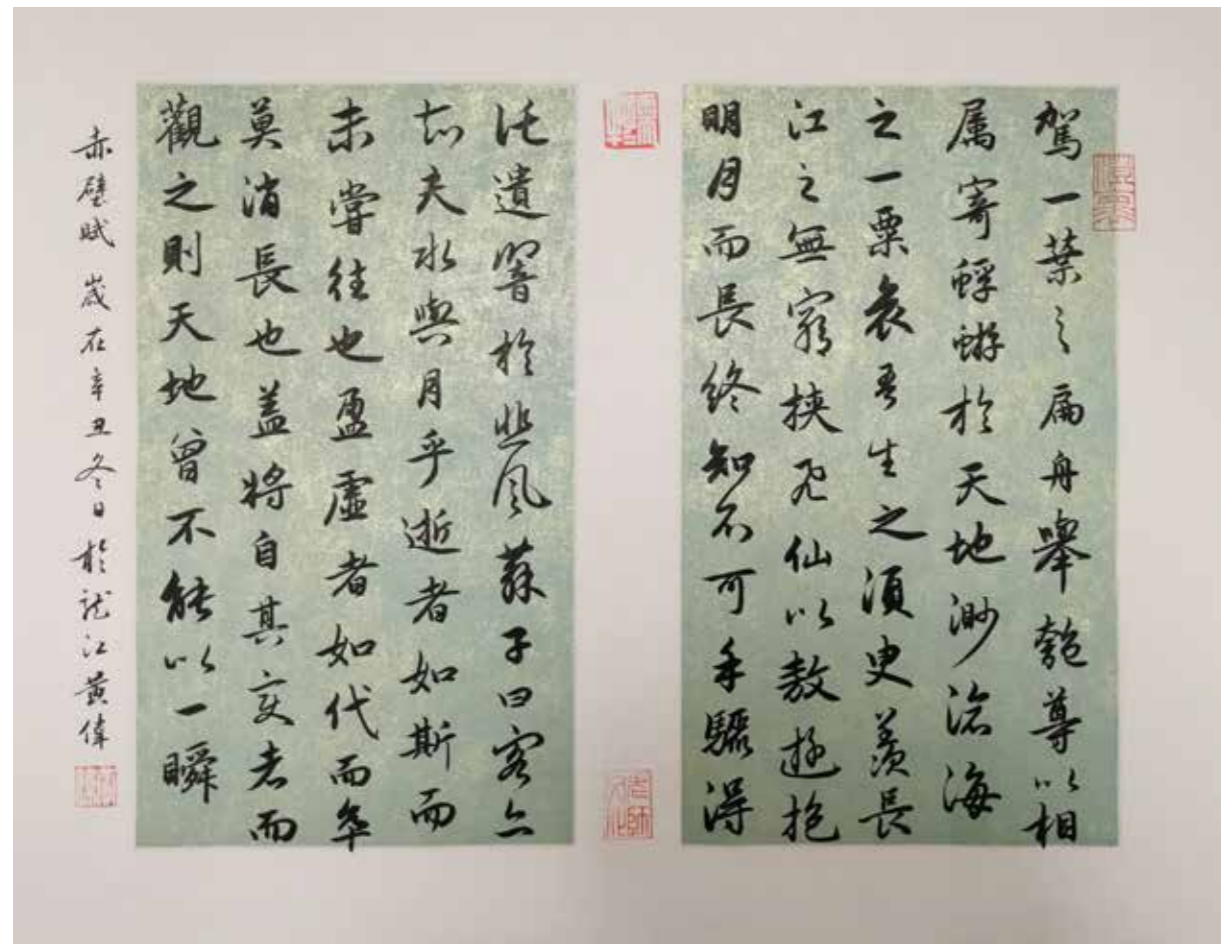 駕一葉之扁舟舉匏尊以相
属寄蜉蝣於天地渺滄海
之一粟哀吾生之須臾羨長
江之無窮挟飛仙以遨遊抱
明月而長終知不可乎驟得
託遺響於悲風蘇子曰客亦
知夫水與月乎逝者如斯而
未嘗往也盈虛者如代而卒
莫消長也盖將自其变者而
觀之則天地曾不能以一瞬
赤壁賦 歲在辛丑冬日於龍江黄偉